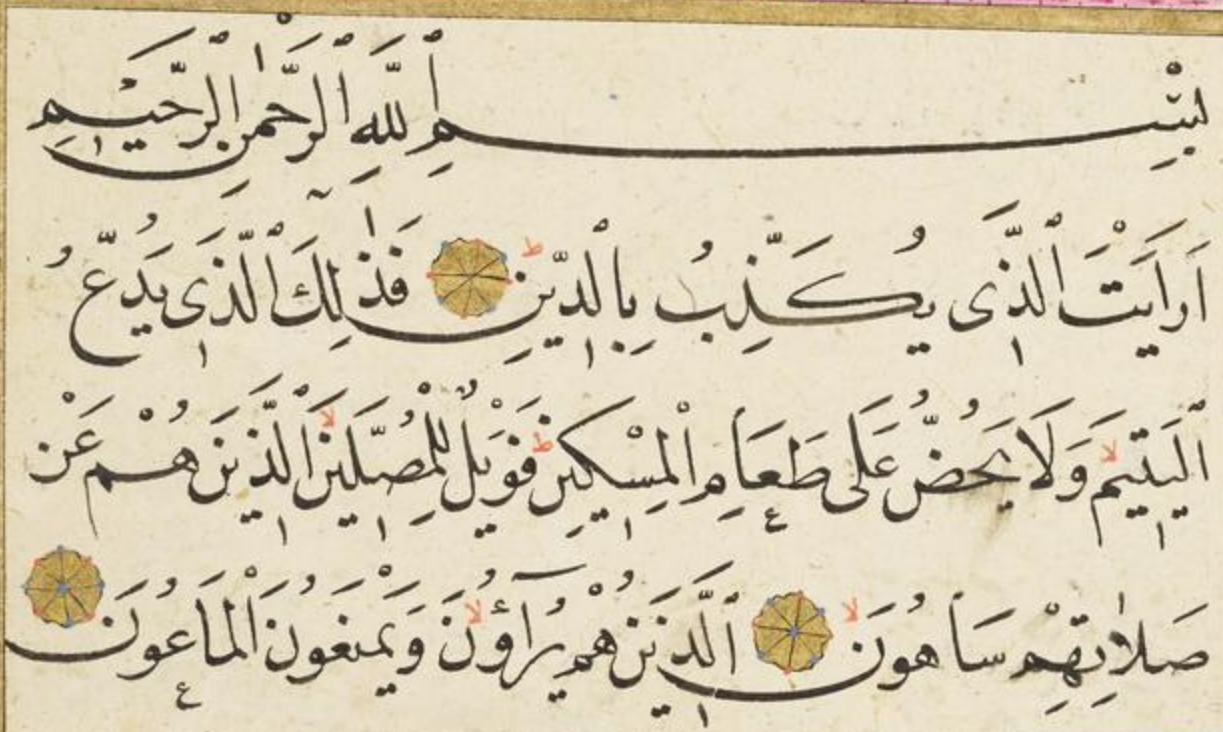 بِسْمِ ٱللَّهِ ٱلرَّحْمٰنِ ٱلرَّحِيمِ
اَرَاَيْتَ ٱلَّذٖى يُكَذِّبُ بِالدّٖينِ ط فَذٰلِكَ ٱلَّذٖى يَدُعُّ
ٱلْيَتٖيمَ لا وَلَا يَحُضُّ عَلٰى طَعَامِ ٱلْمِسْكٖينِ ط فَوَيْلٌ لِلْمُصَلّٖينَ لا ٱلَّذٖينَ هُمْ عَنْ
صَلَاتِهِمْ سَاهُونَ لا ٱلَّذٖينَ هُمْ يُرَآؤُنَ لا وَيَمْنَعُونَ ٱلْمَاعُونَ